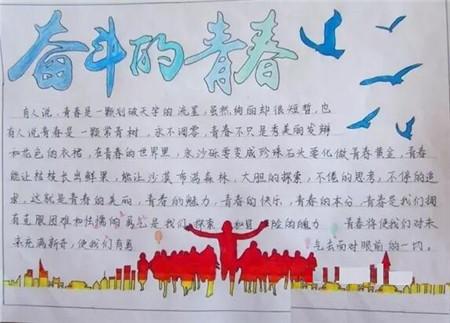 奋斗的青春
有人说,青春是一颗划破天学的流星,虽然绚丽却很短暂,也
有人说青春是一颗常青树,永不凋零,青春不只是秀美丽发辫
和花色的衣裙,在青春的世界里,水沙砾要变成珍珠石头要化做黄金,青春
能让枯枝长出鲜果,能让沙漠布满森林,大胆的探索,不倦的思考,不停的追
求,这就是青春的美丽,青春的魅力,青春的快乐,青春的本分,青春是我们拥
有克服困难和怯懦的勇气是我们探索 险的魄力 青春将使我们对未
来充满新奇,使我们有勇 气去面对眼前的一切。